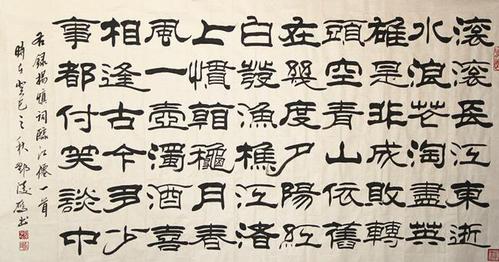 滚滚長江東逝
水浪花淘盡英
雄是非成敗轉
頭空青山依舊
在幾度夕陽紅
白發漁樵江渚
上慣看穐月春
風一壺濁酒喜
相逢古今多少
事都付笑談中
右錄楊慎詞臨江僊一首
時在癸巳之秋鄧書